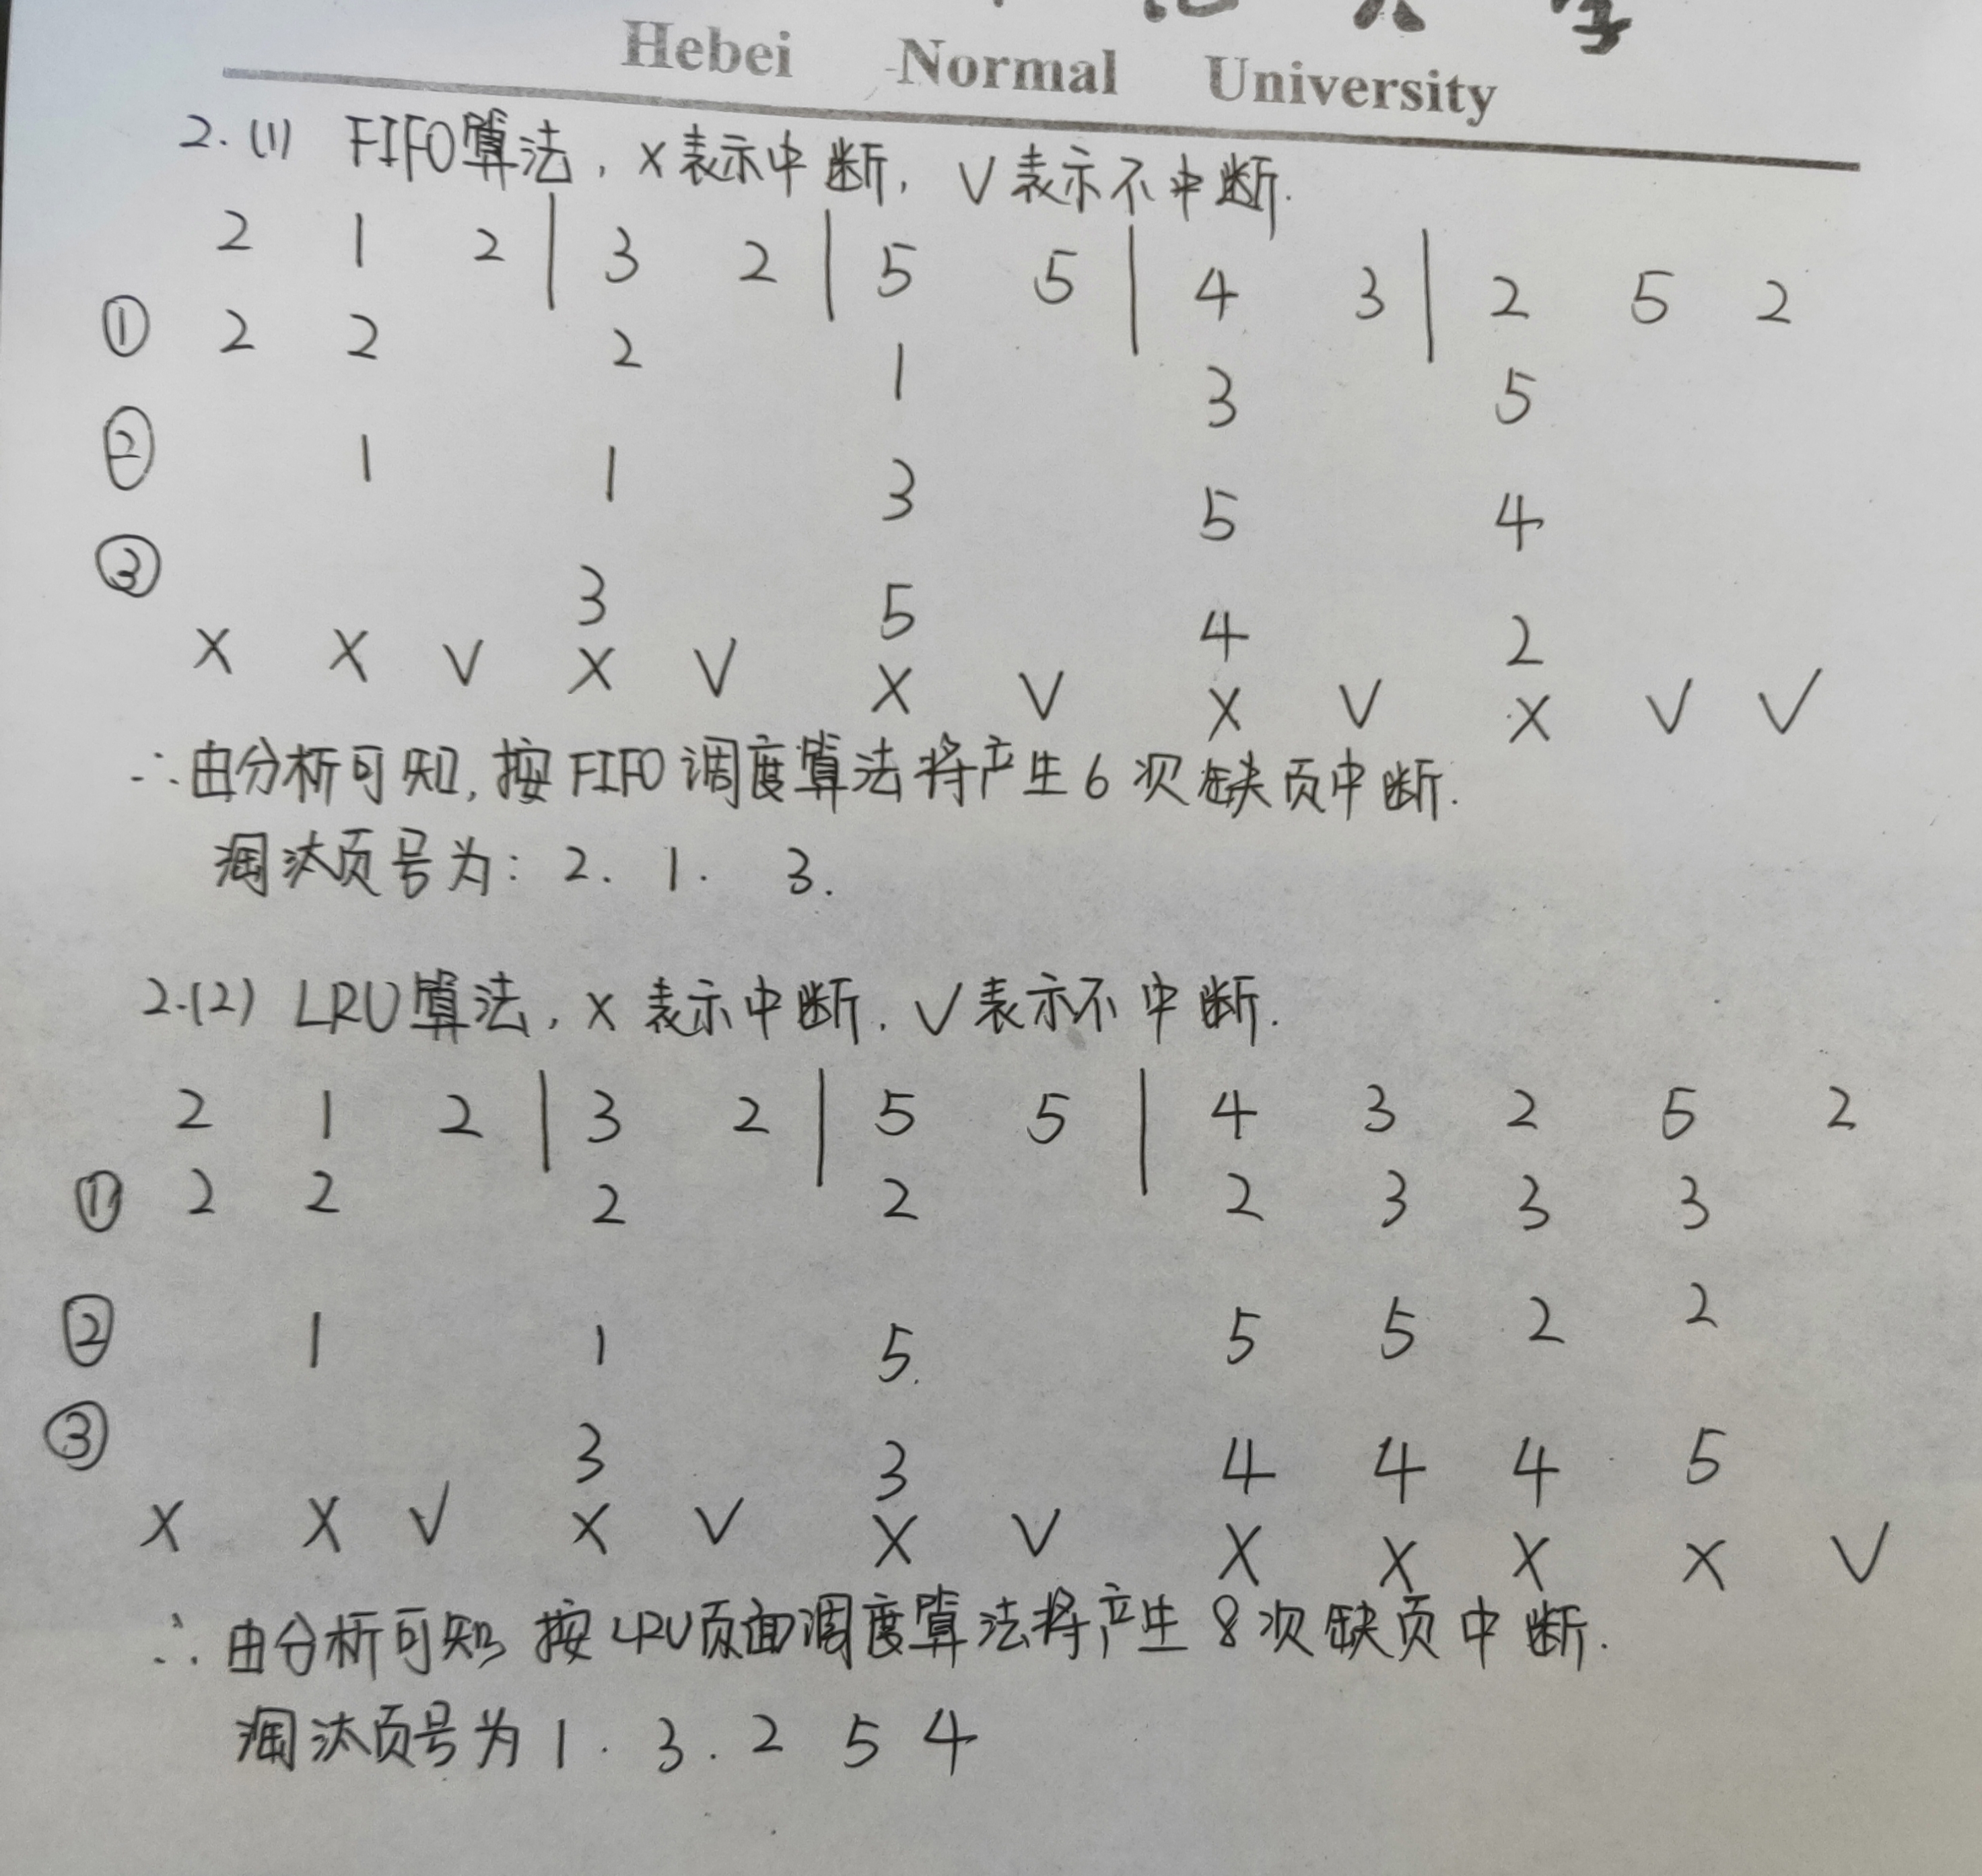 Hebei Normal University
2.(1) FIFO算法, X表示中断, V表示不中断.
2 1 2 | 3 2 | 5 5 | 4 3 | 2 5 2
① 2 2 2 1 3 5
② 1 1 3 5 4
③ 3 5 4 2
X X V X V X V X V X V V
∴由分析可知, 按FIFO调度算法将产生6次缺页中断.
淘汰页号为: 2. 1. 3.
2.(2) LRU算法, X表示中断, V表示不中断.
2 1 2 | 3 2 | 5 5 | 4 3 2 5 2
① 2 2 2 2 2 3 3 3
② 1 1 5 5 5 2 2
③ 3 3 4 4 4 5
X X V X V X V X X X X V
∴由分析可知 按LRU页面调度算法将产生8次缺页中断.
淘汰页号为1. 3. 2 5 4